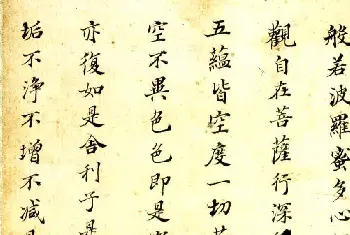 般若波羅蜜多心
觀自在菩薩行深
五蘊皆空度一切
空不異色色即是
亦復如是舍利子是
垢不淨不增不減是